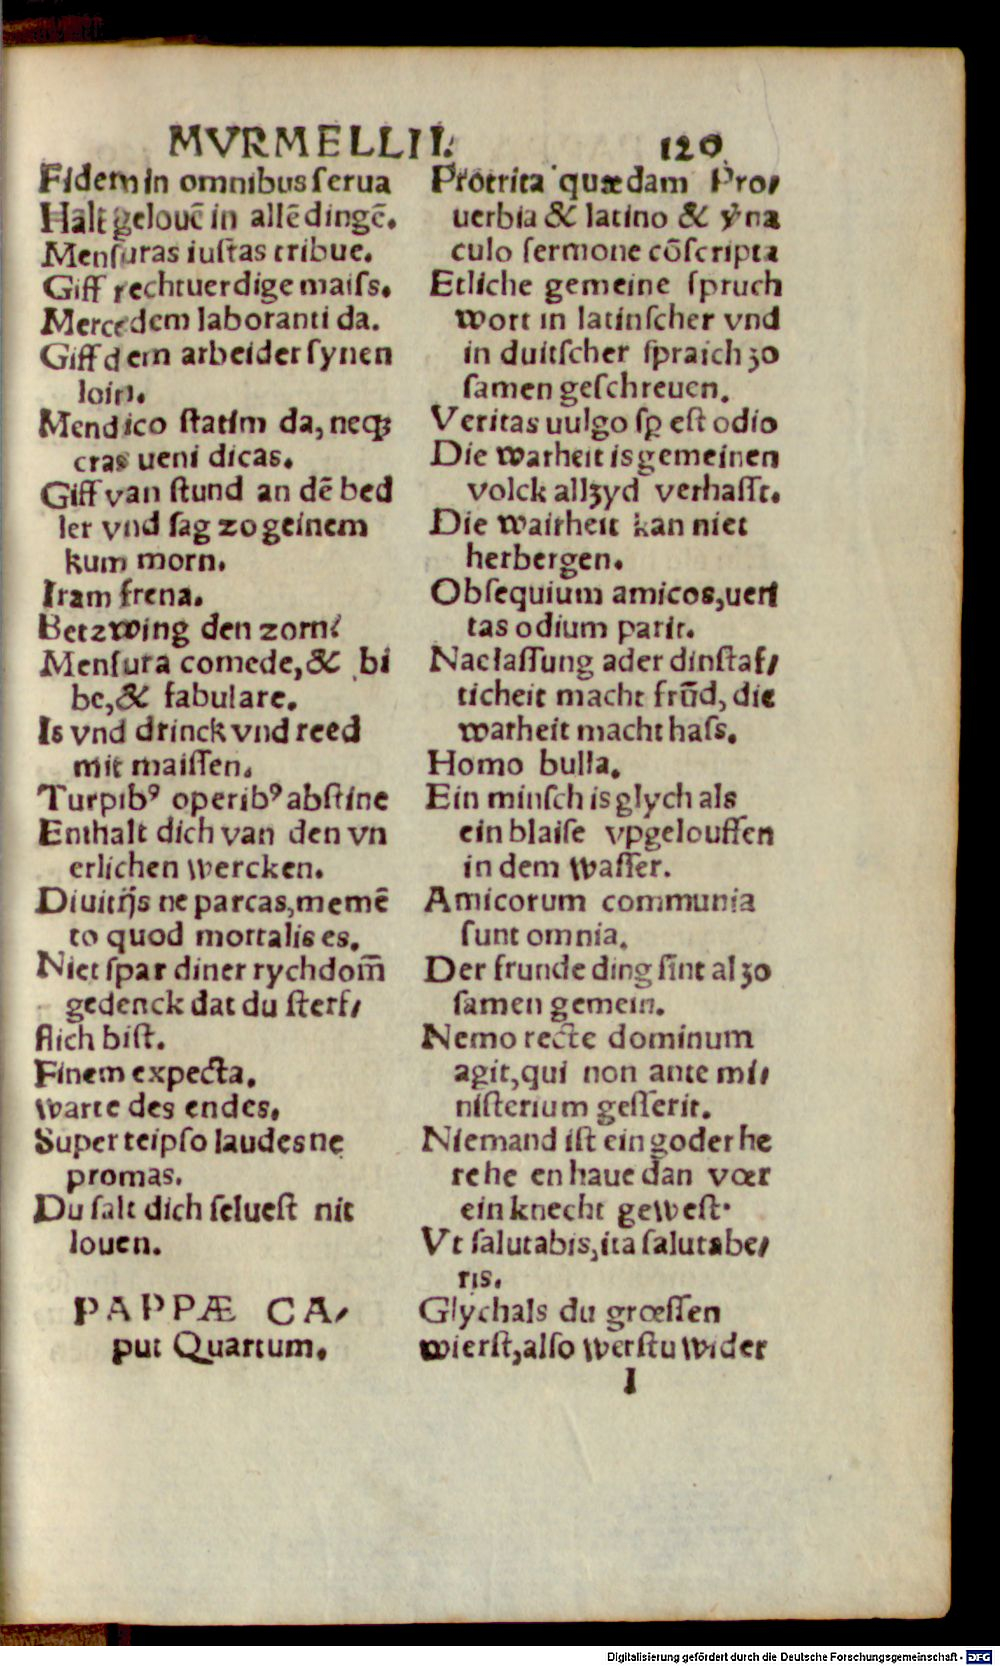 MVRMELLII. 120
Fidem in omnibus ſerua
Halt gelouē in allē dingē.
Menſuras iuſtas tribue.
Giff rechtuerdige maiſs.
Mercedem laboranti da.
Giff dem arbeider ſynen
loin.
Mendico ſtatim da, neqꝫ
cras ueni dicas.
Giff van ſtund an dē bed
ler vnd ſag zo geinem
kum morn.
Iram frena.
Betzwing den zorn.
Menſura comede, & bi
be, & fabulare.
Is vnd drinck vnd reed
mit maiſſen.
Turpibꝰ operibꝰ abſtine
Enthalt dich van den vn
erlichen wercken.
Diuitijs ne parcas, memē
to quod mortalis es.
Niet ſpar diner rychdom̄
gedenck dat du ſterf⸗
flich biſt.
Finem expecta.
warte des endes.
Super teipſo laudes ne
promas.
Du ſalt dich ſelueſt nit
louen.
PAPPÆ CA⸗
put Quartum.
Protrita quædam Pro⸗
uerbia & latino & v̓na
culo ſermone cōſcripta
Etliche gemeine ſpruch
wort in latinſcher vnd
in duitſcher ſpraich ꝫo
ſamen geſchreuen.
Veritas uulgo ſꝑ eſt odio
Die warheit is gemeinen
volck allꝫyd verhaſſt.
Die wairheit kan niet
herbergen.
Obſequium amicos, ueri
tas odium parit.
Naclaſſung ader dinſtaf⸗
ticheit macht frūd, die
warheit macht haſs.
Homo bulla.
Ein minſch is glych als
ein blaiſe vpgelouffen
in dem waſſer.
Amicorum communia
ſunt omnia.
Der frunde ding ſint al ꝫo
ſamen gemein.
Nemo recte dominum
agit, qui non ante mi⸗
niſterium geſſerit.
Niemand iſt ein goder he
rehe en haue dan vœr
ein knecht geweſt.
Vt ſalutabis, ita ſalutabe⸗
ris.
Glych als du grœſſen
wierſt, alſo werſtu wider
I
Digitalisierung gefördert durch die Deutsche Forschungsgemeinschaft - DFG